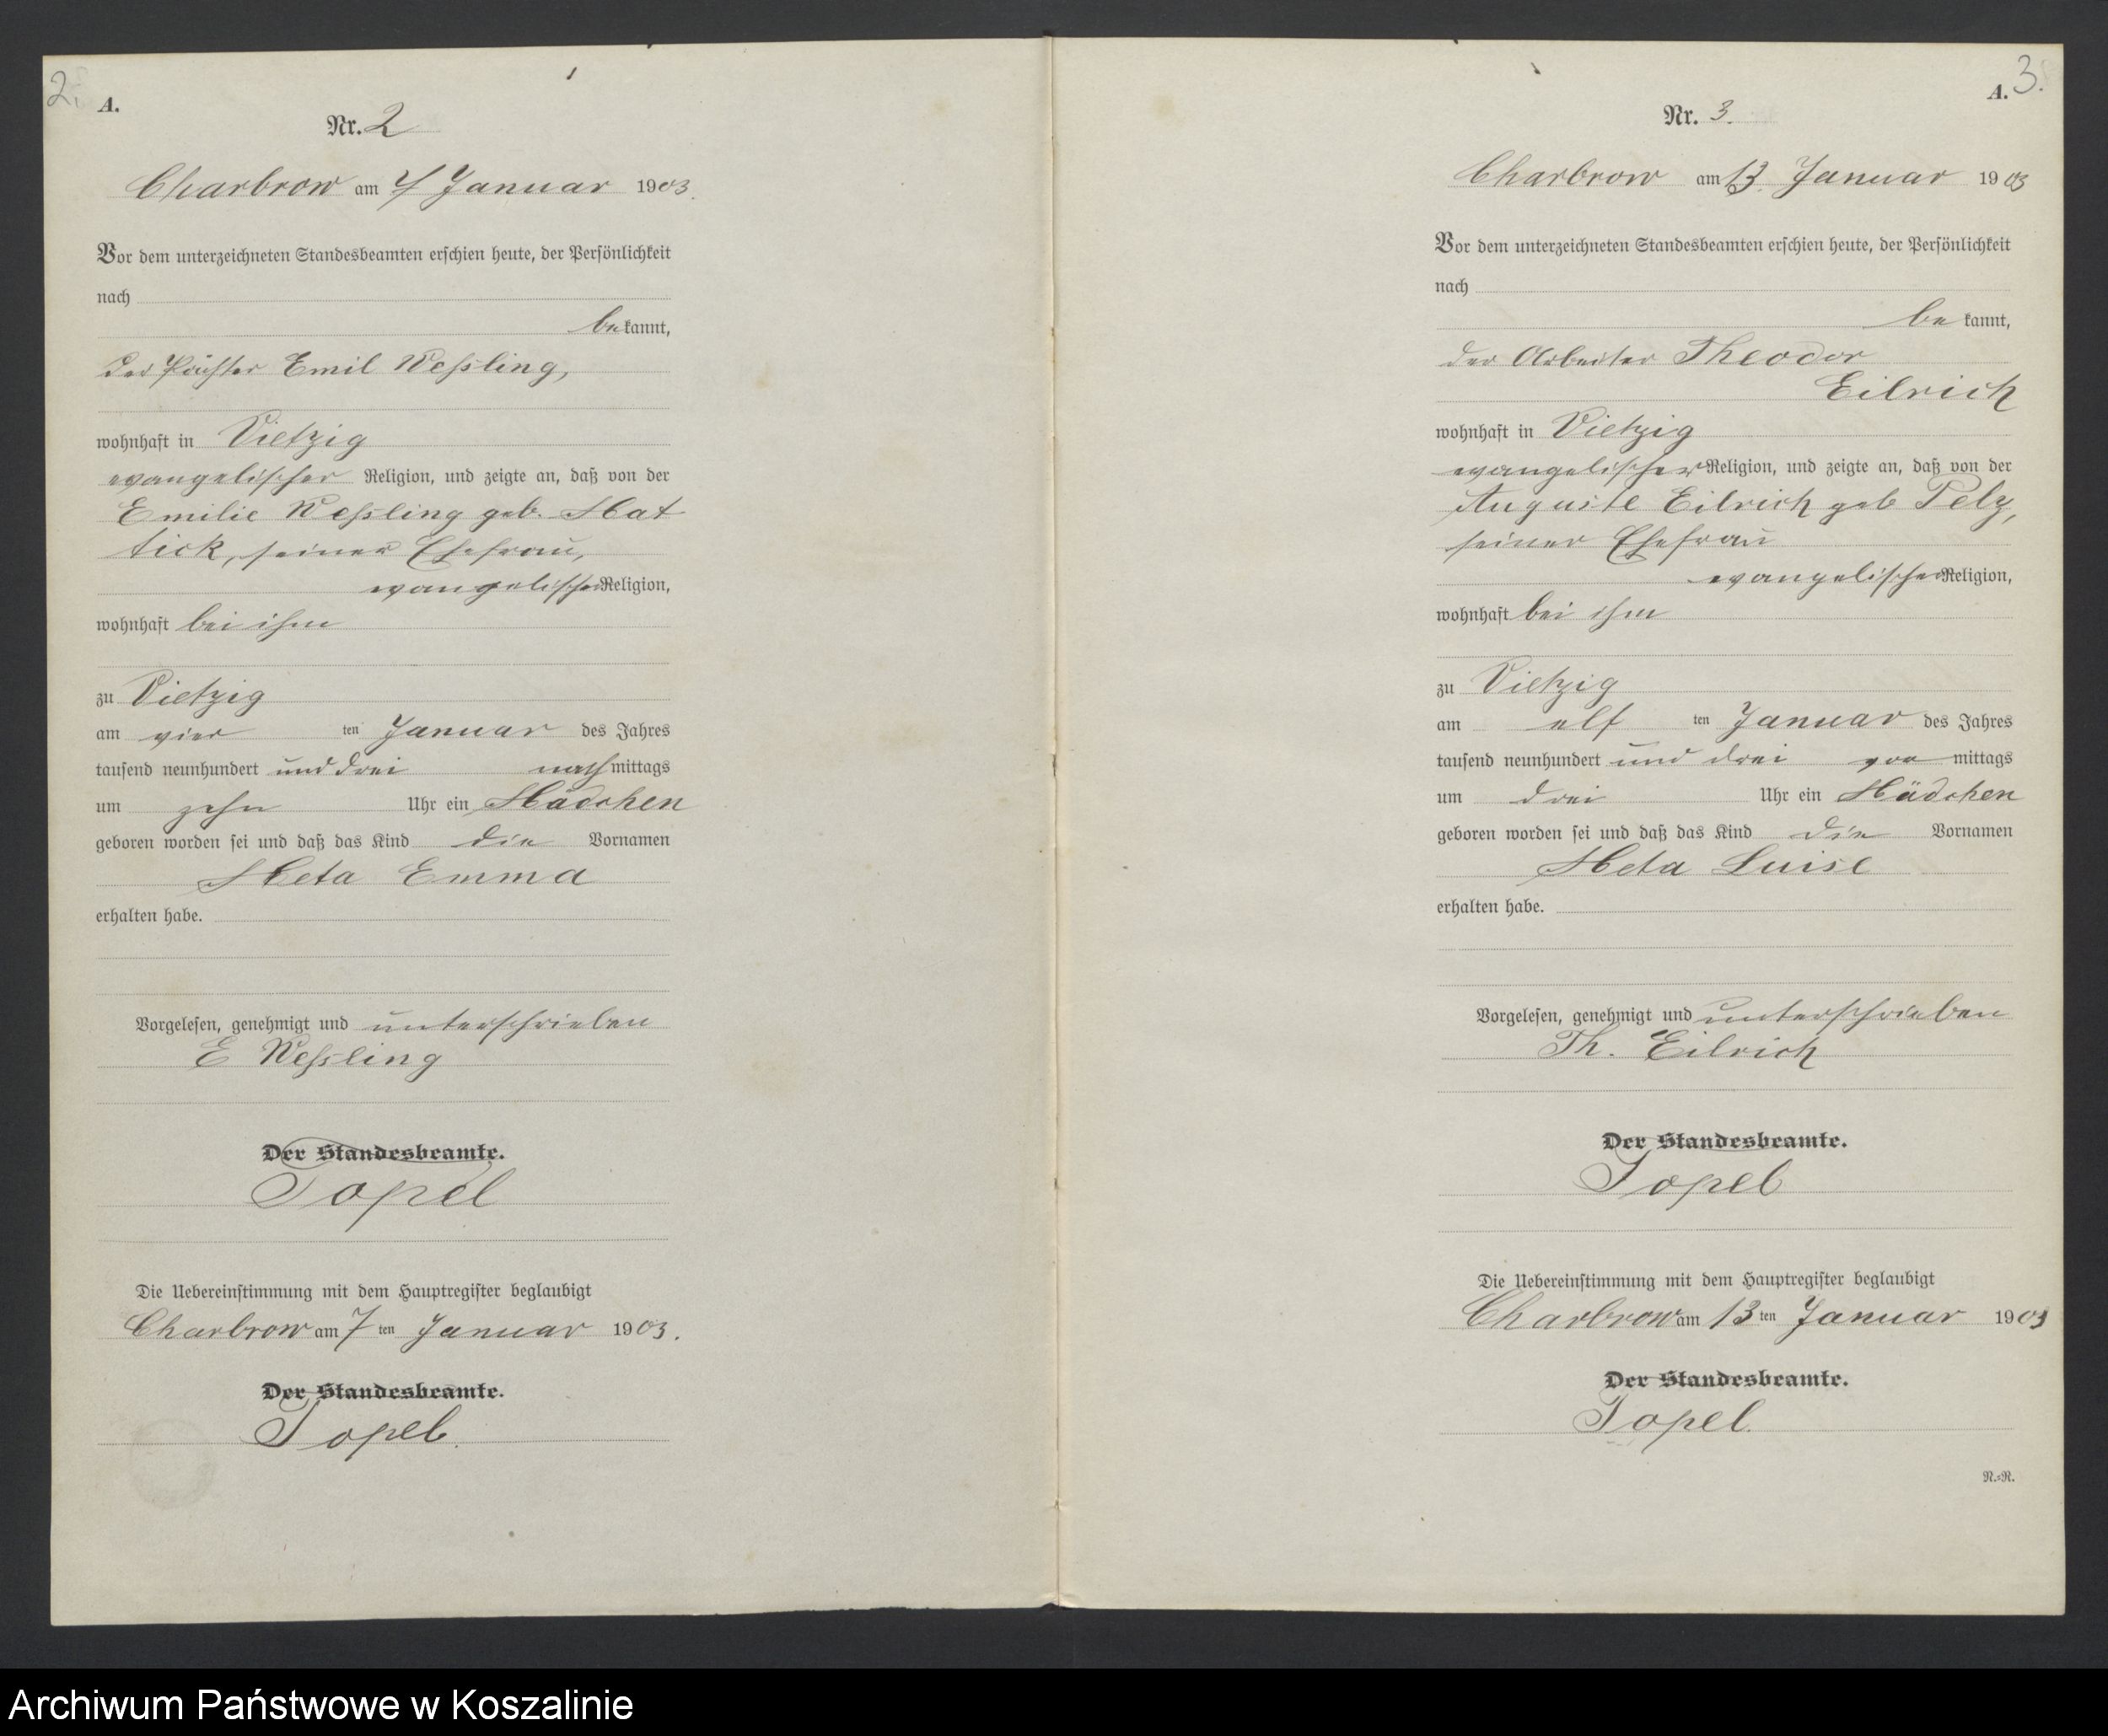 2.
A.
Nr. 2
Charbrow am 7 Januar 1903.
Vor dem unterzeichneten Standesbeamten erschien heute, der Persönlichkeit
nach
bekannt,
der Pächter Emil Weßling,
wohnhaft in Vietzig
evangelischer Religion, und zeigte an, daß von der
Emilie Weßling geb. Mat
tick, seiner Ehefrau,
evangelischer Religion,
wohnhaft bei ihm
zu Vietzig
am vier ten Januar des Jahres
tausend neunhundert und drei nachmittags
um zehn Uhr ein Mädchen
geboren worden sei und daß das Kind die Vornamen
Meta Emma
erhalten habe.
Vorgelesen, genehmigt und unterschrieben
E Weßling
Der Standesbeamte.
Topel
Die Uebereinstimmung mit dem Hauptregister beglaubigt
Charbrow am 7ten Januar 1903.
Der Standesbeamte.
Topel.
3.
A.
Nr. 3.
Charbrow am 13. Januar 1903
Vor dem unterzeichneten Standesbeamten erschien heute, der Persönlichkeit
nach
bekannt,
der Arbeiter Theodor
Eilrich
wohnhaft in Vietzig
evangelischer Religion, und zeigte an, daß von der
Auguste Eilrich geb Pelz,
seiner Ehefrau
evangelischer Religion,
wohnhaft bei ihm
zu Vietzig
am elf ten Januar des Jahres
tausend neunhundert und drei vormittags
um drei Uhr ein Mädchen
geboren worden sei und daß das Kind die Vornamen
Meta Luise
erhalten habe.
Vorgelesen, genehmigt und unterschrieben
Th. Eilrich
Der Standesbeamte.
Topel
Die Uebereinstimmung mit dem Hauptregister beglaubigt
Charbrow am 13ten Januar 1903
Der Standesbeamte.
Topel.
N.=R.
Archiwum Państwowe w Koszalinie